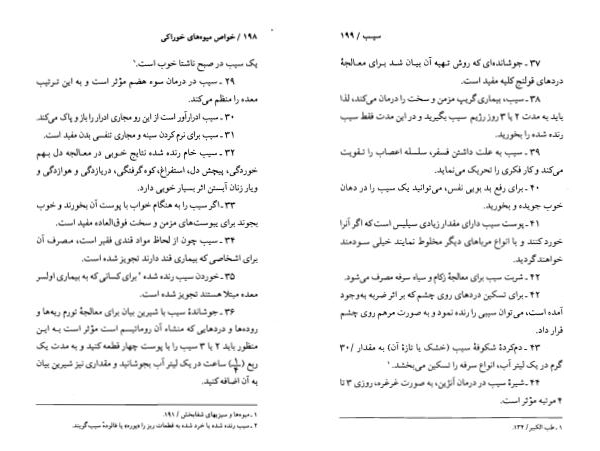 ۱۹۸ / خواص میوه‌های خوراکی
یک سیب در صبح ناشتا خوب است.¹
۲۹ ـ سیب در درمان سوء هضم مؤثر است و به این ترتیب
معده را منظم می‌کند.
۳۰ ـ سیب ادرارآور است از این رو مجاری ادرار را باز و پاک می‌کند.
۳۱ ـ سیب برای نرم کردن سینه و مجاری تنفسی بدن مفید است.
۳۲ ـ سیب خام رنده شده نتایج خوبی در معالجه دل بهم
خوردگی، پیچش دل، استفراغ، کوه گرفتگی، دریازدگی و هوازدگی و
ویار زنان آبستن اثر بسیار خوبی دارد.
۳۳ ـ اگر سیب را به هنگام خواب با پوست آن بخورند و خوب
بجوند برای یبوست‌های مزمن و سخت فوق‌العاده مفید است.
۳۴ ـ سیب چون از لحاظ مواد قندی فقیر است، مصرف آن
برای اشخاصی که بیماری قند دارند تجویز شده است.
۳۵ ـ خوردن سیب رنده شده ² برای کسانی که به بیماری اولسر
معده مبتلا هستند تجویز شده است.
۳۶ ـ جوشاندهٔ سیب با شیرین بیان برای معالجهٔ تورم ریه‌ها و
روده‌ها و دردهایی که منشاء آن روماتیسم است مؤثر است به این
منظور باید ۲ یا ۳ سیب را با پوست چهار قطعه کنید و به مدت یک
ربع (¼) ساعت در یک لیتر آب بجوشانید و مقداری نیز شیرین بیان
به آن اضافه کنید.
۱ ـ میوه‌ها و سبزیهای شفابخش / ۱۹۱.
۲ ـ سیب رنده شده یا خرد شده به قطعات ریز را (پوره) یا فالودهٔ سیب گویند.
سیب / ۱۹۹
۳۷ ـ جوشانده‌ای که روش تهیه آن بیان شد برای معالجهٔ
دردهای قولنج کلیه مفید است.
۳۸ ـ سیب، بیماری گریپ مزمن و سخت را درمان می‌کند، لذا
باید به مدت ۲ یا ۳ روز رژیم سیب بگیرید و در این مدت فقط سیب
رنده شده را بخورید.
۳۹ ـ سیب به علت داشتن فسفر، سلسله اعصاب را تقویت
می‌کند و کار فکری را تحریک می‌نماید.
۴۰ ـ برای رفع بد بویی نفس، می‌توانید یک سیب را در دهان
خوب جویده و بخورید.
۴۱ ـ پوست سیب دارای مقدار زیادی سیلیس است که اگر آنرا
خورد کنند و با انواع مرباهای دیگر مخلوط نمایند خیلی سودمند
خواهند گردید.
۴۲ ـ شربت سیب برای معالجهٔ زکام و سیاه سرفه مصرف می‌شود.
۴۲ ـ برای تسکین دردهای روی چشم که بر اثر ضربه به‌وجود
آمده است، می‌توان سیبی را رنده نمود و به صورت مرهم روی چشم
قرار داد.
۴۳ ـ دم‌کردهٔ شکوفهٔ سیب (خشک یا تازهٔ آن) به مقدار /۳۰
گرم در یک لیتر آب، انواع سرفه را تسکین می‌بخشد.¹
۴۴ ـ شیرهٔ سیب در درمان آنژین، به صورت غرغره، روزی ۳ تا
۴ مرتبه مؤثر است.
۱ ـ طب الکبیر / ۱۳۲.